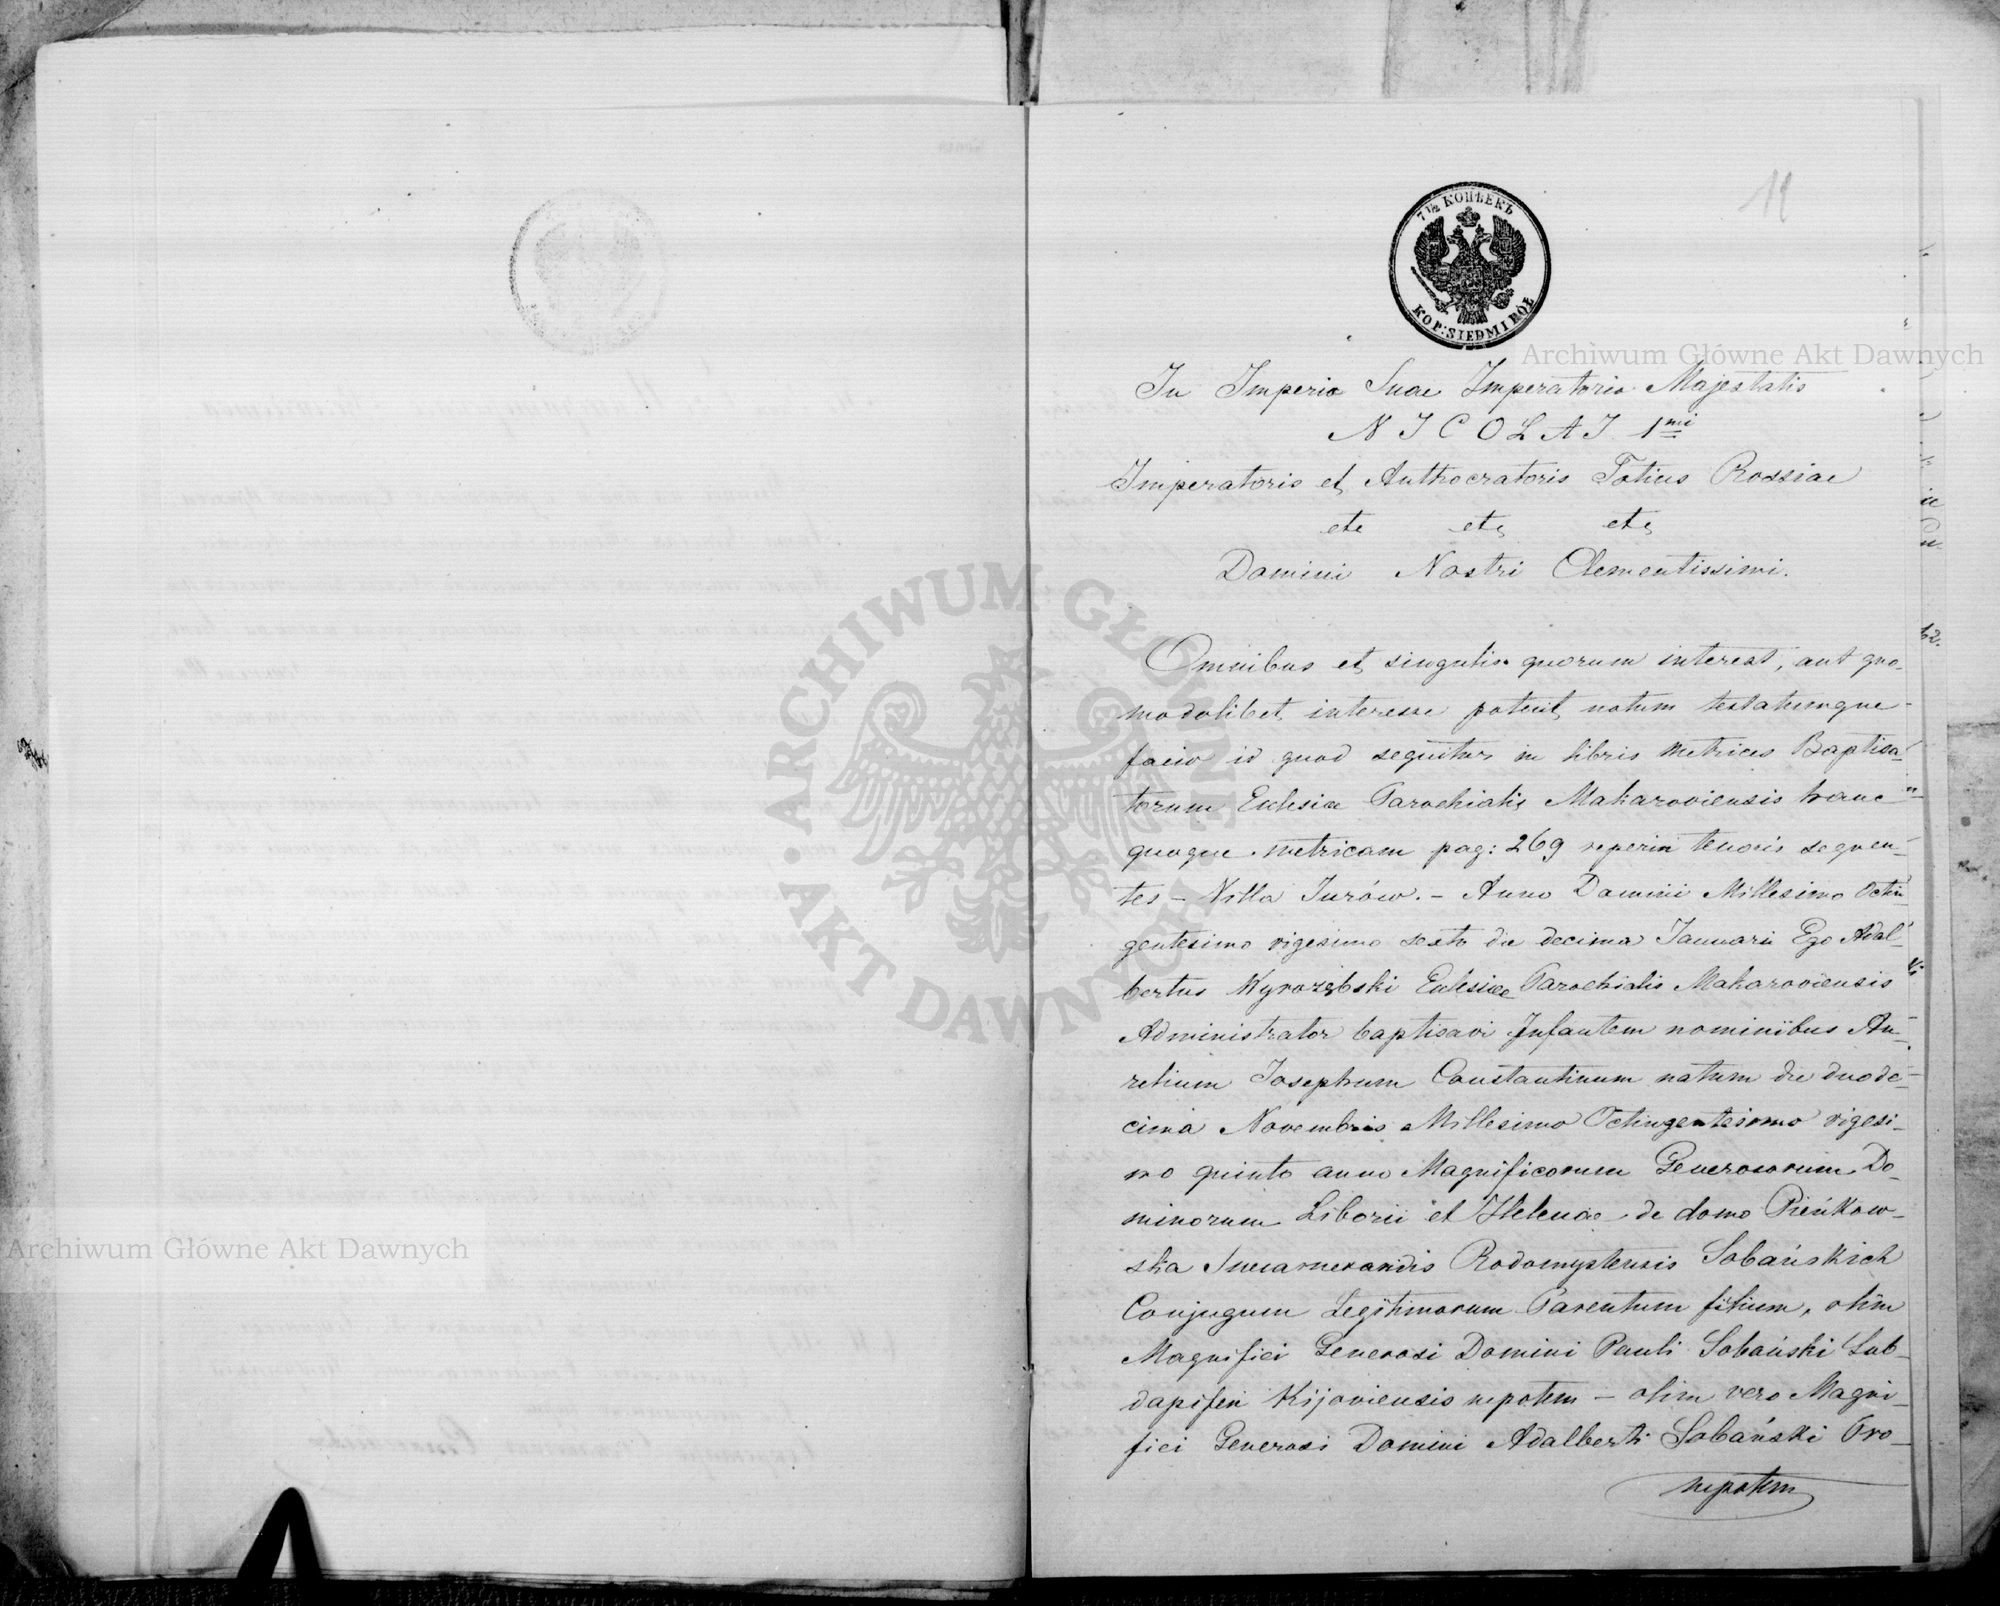 19
7 1/2 КОПѢЕКЪ
KOP: SIEDMI PÓŁ
Archiwum Główne Akt Dawnych
In Imperio Suae Imperatoriae Majestatis
NICOLAI 1mi
Imperatoris et Authocratoris Totius Rossiae
etc etc etc
Domini Nostri Clementissimi.
Omnibus et singulis quorum interest, aut quo-
modolibet interesse potent notum testatumque
facio id quod sequitur in libris metrices Baptisa-
torum Eclesiae Parochialis Makaroviensis hanc
quoque metricam pag: 269 reperiri tenoris sequen-
tes - Villa Jurów. - Anno Domini Millesimo Octin
gentesimo vigesimo sexto die decima Januarii Ego Adal-
bertus Wyrozębski Eclesiae Parochialis Makaroviensis
Administrator baptisavi Infantem nominibus Au-
relium Josephum Constantinum natum die duode-
cima Novembris Millesimo Octingentesimo vigesi-
mo quinto anno Magnificorum Generosorum Do-
minorum Liborii et Helenae de domo Pieńkow-
ska Radomyslensis Sobańskich
Conjugum Legitimorum Parentum filium, olim
Magnifici Generosi Domini Pauli Sobański Sub-
dapiferi Kijoviensis nepotem - olim vero Magni-
fici Generosi Domini Adalberti Sobański Pro-
nepotem
ARCHIWUM GŁÓWNE AKT DAWNYCH
Archiwum Główne Akt Dawnych